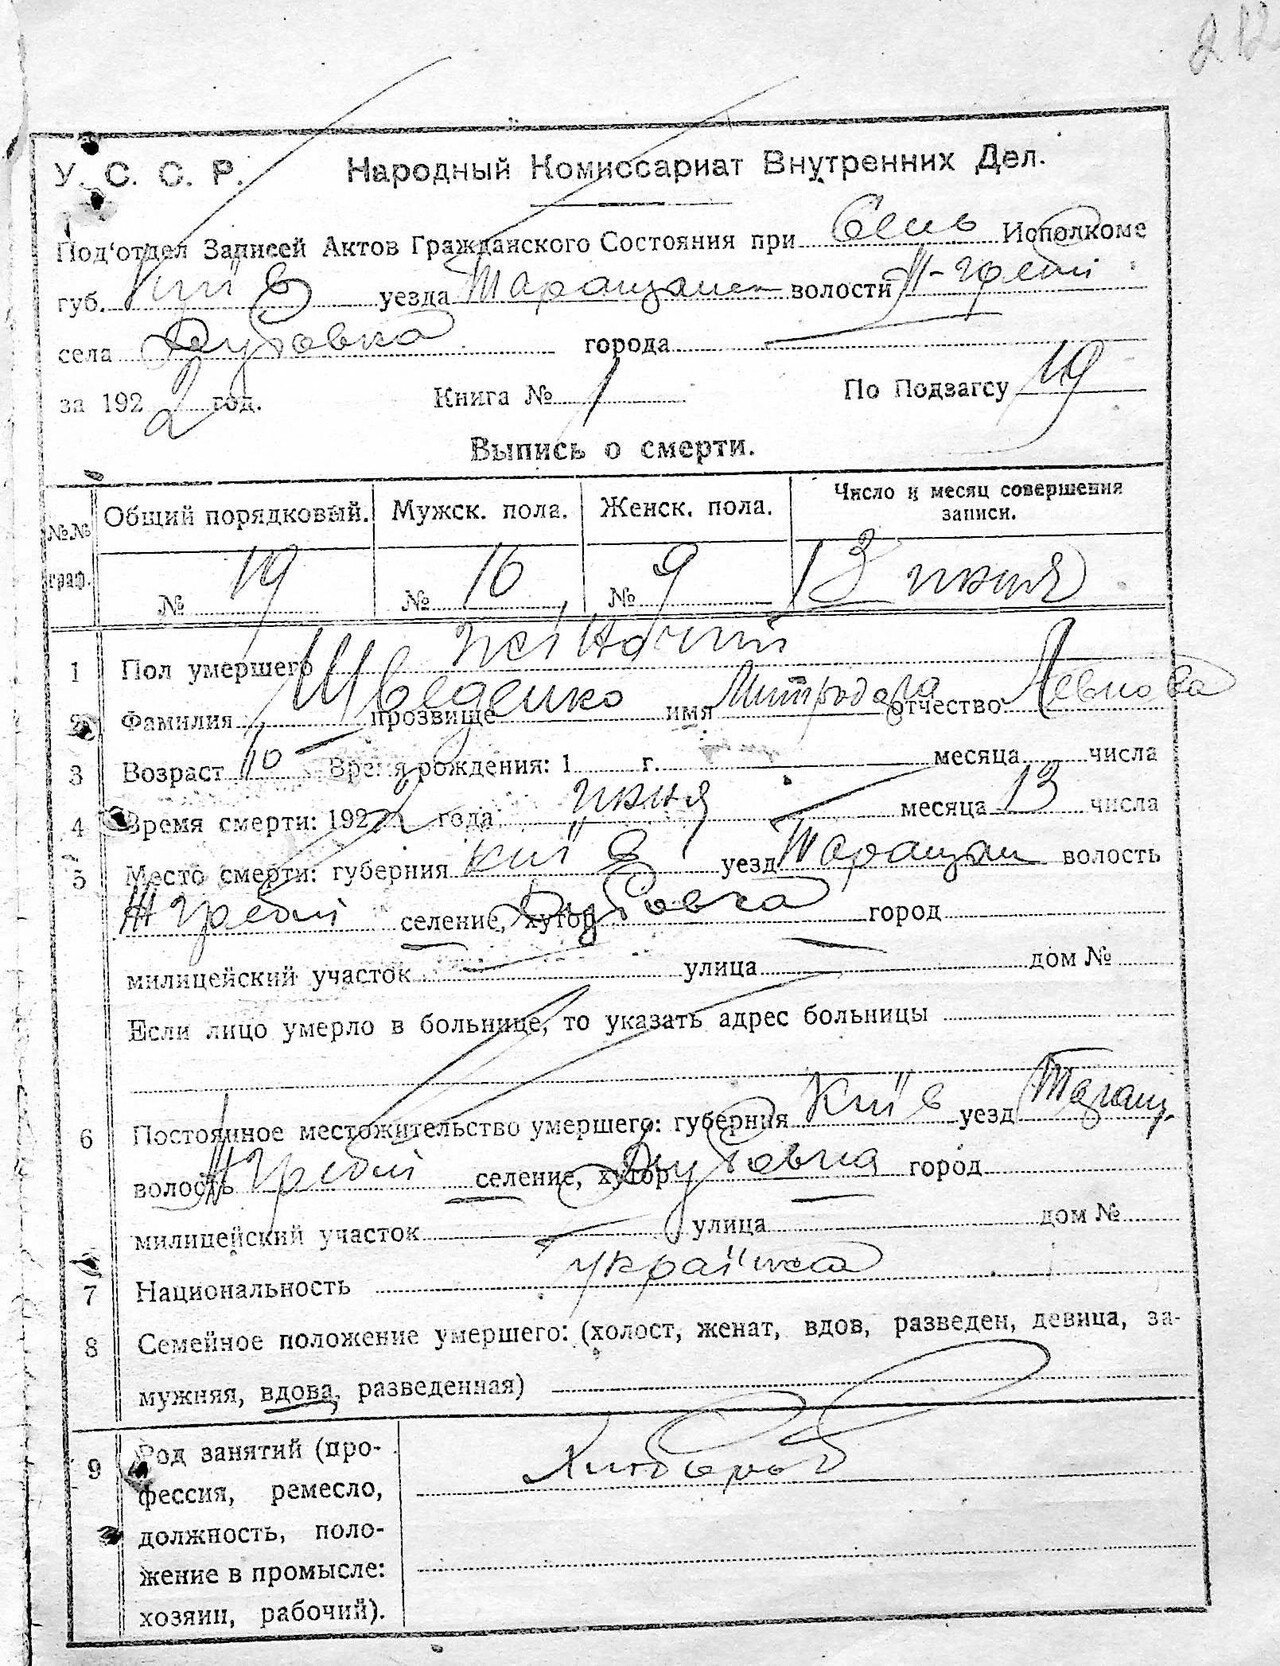 212
У. С. С. Р. Народный Комиссариат Внутренних Дел.
Под'отдел Записей Актов Гражданского Состояния при Сель Исполкоме
губ. Київ уезда Таращанск волости Ж-Гребі
села Дубовка города
за 1922 год. Книга № 1 По Подзагсу 19
Выпись о смерти.
№№ граф. Общий порядковый. Мужск. пола. Женск. пола. Число и месяц совершения записи.
№ 19 № 10 № 9 13 июня
1 Пол умершего жіночий
2 Фамилия Шведенко прозвище имя Митродора отчество
3 Возраст 10 Время рождения: 1 г. месяца числа
4 Время смерти: 1922 года июня месяца 13 числа
5 Место смерти: губерния Київ уезд Таращан волость
Ж Гребні селение, хутор Дубовка город
милицейский участок улица дом №
Если лицо умерло в больнице, то указать адрес больницы
6 Постоянное местожительство умершего: губерния Київ уезд Таращ.
волость Ж Гребні селение, хутор Дубовка город
милицейский участок улица дом №
7 Национальность українка
8 Семейное положение умершего: (холост, женат, вдов, разведен, девица, за-
мужняя, вдова, разведенная)
9 Род занятий (про- Хлібороб
фессия, ремесло,
должность, поло-
жение в промысле:
хозяин, рабочий).